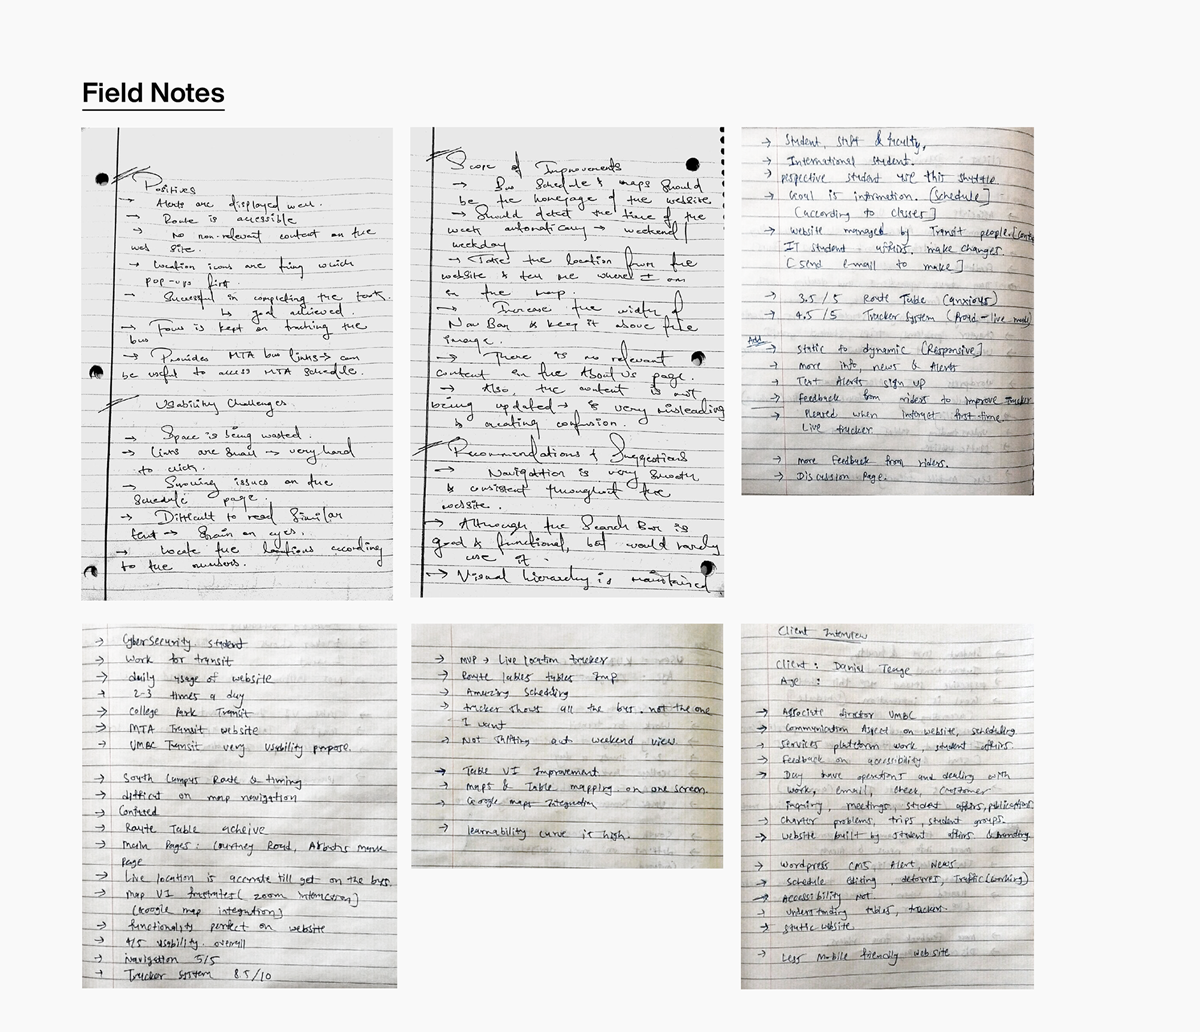 Field Notes
Positives
→ Alerts are displayed well.
→ Route is accessible
→ No non-relevant content on the
web site.
→ Location icons are tiny which
pop-ups first.
→ Successful in completing the task.
↳ goal achieved.
→ Focus is kept on tracking the
bus
→ Provides MTA bus links → can
be useful to access MTA schedule.
Usability Challenges
→ Space is being wasted.
→ Links are small → very hard
to click.
→ issues on the
schedule page.
→ Difficult to read similar
text → Strain on eyes.
→ Locate the locations according
to the numbers.
Scope of Improvements
→ Bus Schedule & maps should
be the homepage of the website
→ Should detect the time of the
week automatically → weekend /
weekday
→ Takes the location from the
website & tell me where I am
on the map.
→ Increase the width of
Nav Bar & keep it above the
image.
→ There is no relevant
content on the About Us page.
→ Also, the content is not
being updated → is very misleading
↳ creating confusion.
Recommendations & Suggestions
→ Navigation is very smooth
& consistent throughout the
website.
→ Although the Search Bar is
good & functional, but would rarely
use it.
→ Visual hierarchy is maintained.
→ Student, staff & faculty,
→ International student.
→ prospective student use this shuttle
→ Goal is information. [Schedule]
[according to closer]
→ website managed by Transit people.
IT student affairs. make changes.
[send e-mail to make]
→ 3.5 / 5 Route Table (anxious)
→ 4.5 / 5 Tracker System (Proud - live
Add
→ static to dynamic [Responsive]
→ more info, news & Alerts
→ Text Alerts sign up
→ feedback from riders to improve tracker
→ Pleased when interact first-time
Live tracker
→ more Feedback from riders.
→ Discussion Page.
→ Cybersecurity student
→ Work for transit
→ daily usage of website
→ 2-3 times a day
→ College Park Transit
→ MTA Transit website
→ UMBC Transit very usability propose.
→ South Campus Route & timing
→ difficit on map navigation
→ Confused
→ Route Table acheive
→ Main Pages: Courtney Road, Arbutus
page
→ Live location is accurate till get on the bus.
→ map UI frustrates [zoom interaction]
[Google map integration]
→ functionality perfect on website
→ 4/5 usability. overall
→ Navigation 5/5
→ Tracker system 8.5/10
→ MVP → Live location tracker
→ Route tables tables Imp
→ Amazing Scheduling
→ tracker shows all the bus. not the one
I want
→ Not shifting out weekend view
→ Table UI Improvement
→ maps & Table mapping on one screen.
→ Google maps Integration
→ learnability curve is high.
Client Interview
Client :
Age :
→ Associate Director UMBC
→ Communication Aspect on website, scheduling
→ Services platform work, student affairs.
→ Feedback on accessibility
→ Day have operations and dealing with
work, email, check, customer
inquiry, meetings, student affairs, publications
→ Charter problems, trips, student groups.
→ website built by student affairs & branding
→ Wordpress CMS, Alert, News
→ Schedule editing, detoures, Traffic
→ Accessibility Not.
→ understanding tables, trackers.
→ static website.
→ Less Mobile friendly website